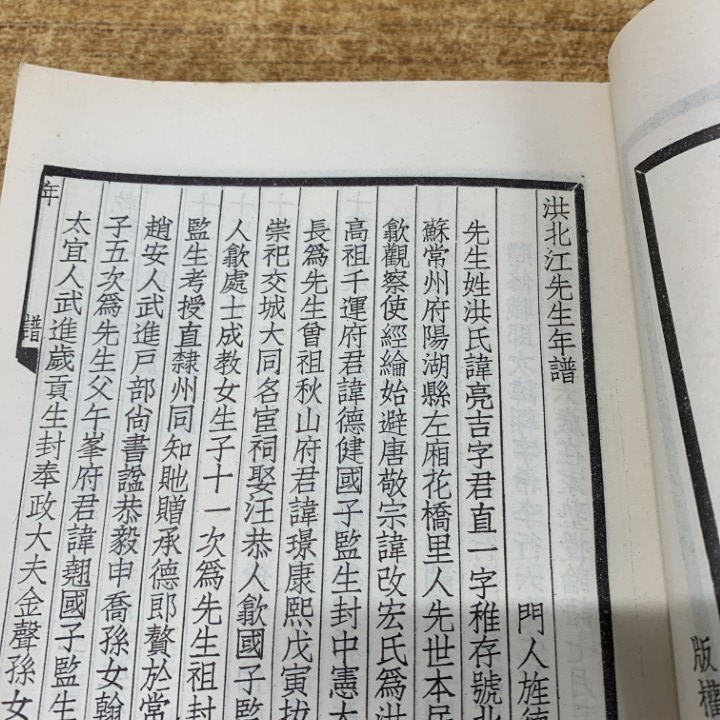 洪北江先生年譜
門人旌德
先生姓洪氏諱亮吉字君直一字稚存號北
蘇常州府陽湖縣左廂花橋里人先世本
歙觀察使經綸始避唐敬宗諱改宏氏爲洪
高祖千運府君諱德健國子監生封中憲大
長爲先生曾祖秋山府君諱璟康熙戊寅拔
崇祀交城大同名宦祠娶汪恭人歙國子監
人歙處士成教女生子十一次爲先生祖封
監生考授直隸州同知貤贈承德郎贅於常
趙安人武進戸部尙書諡恭毅申喬孫女翰
子五次爲先生父午峯府君諱翹國子監生
太宜人武進歲貢生封奉政大夫金聲孫女
年譜
版權